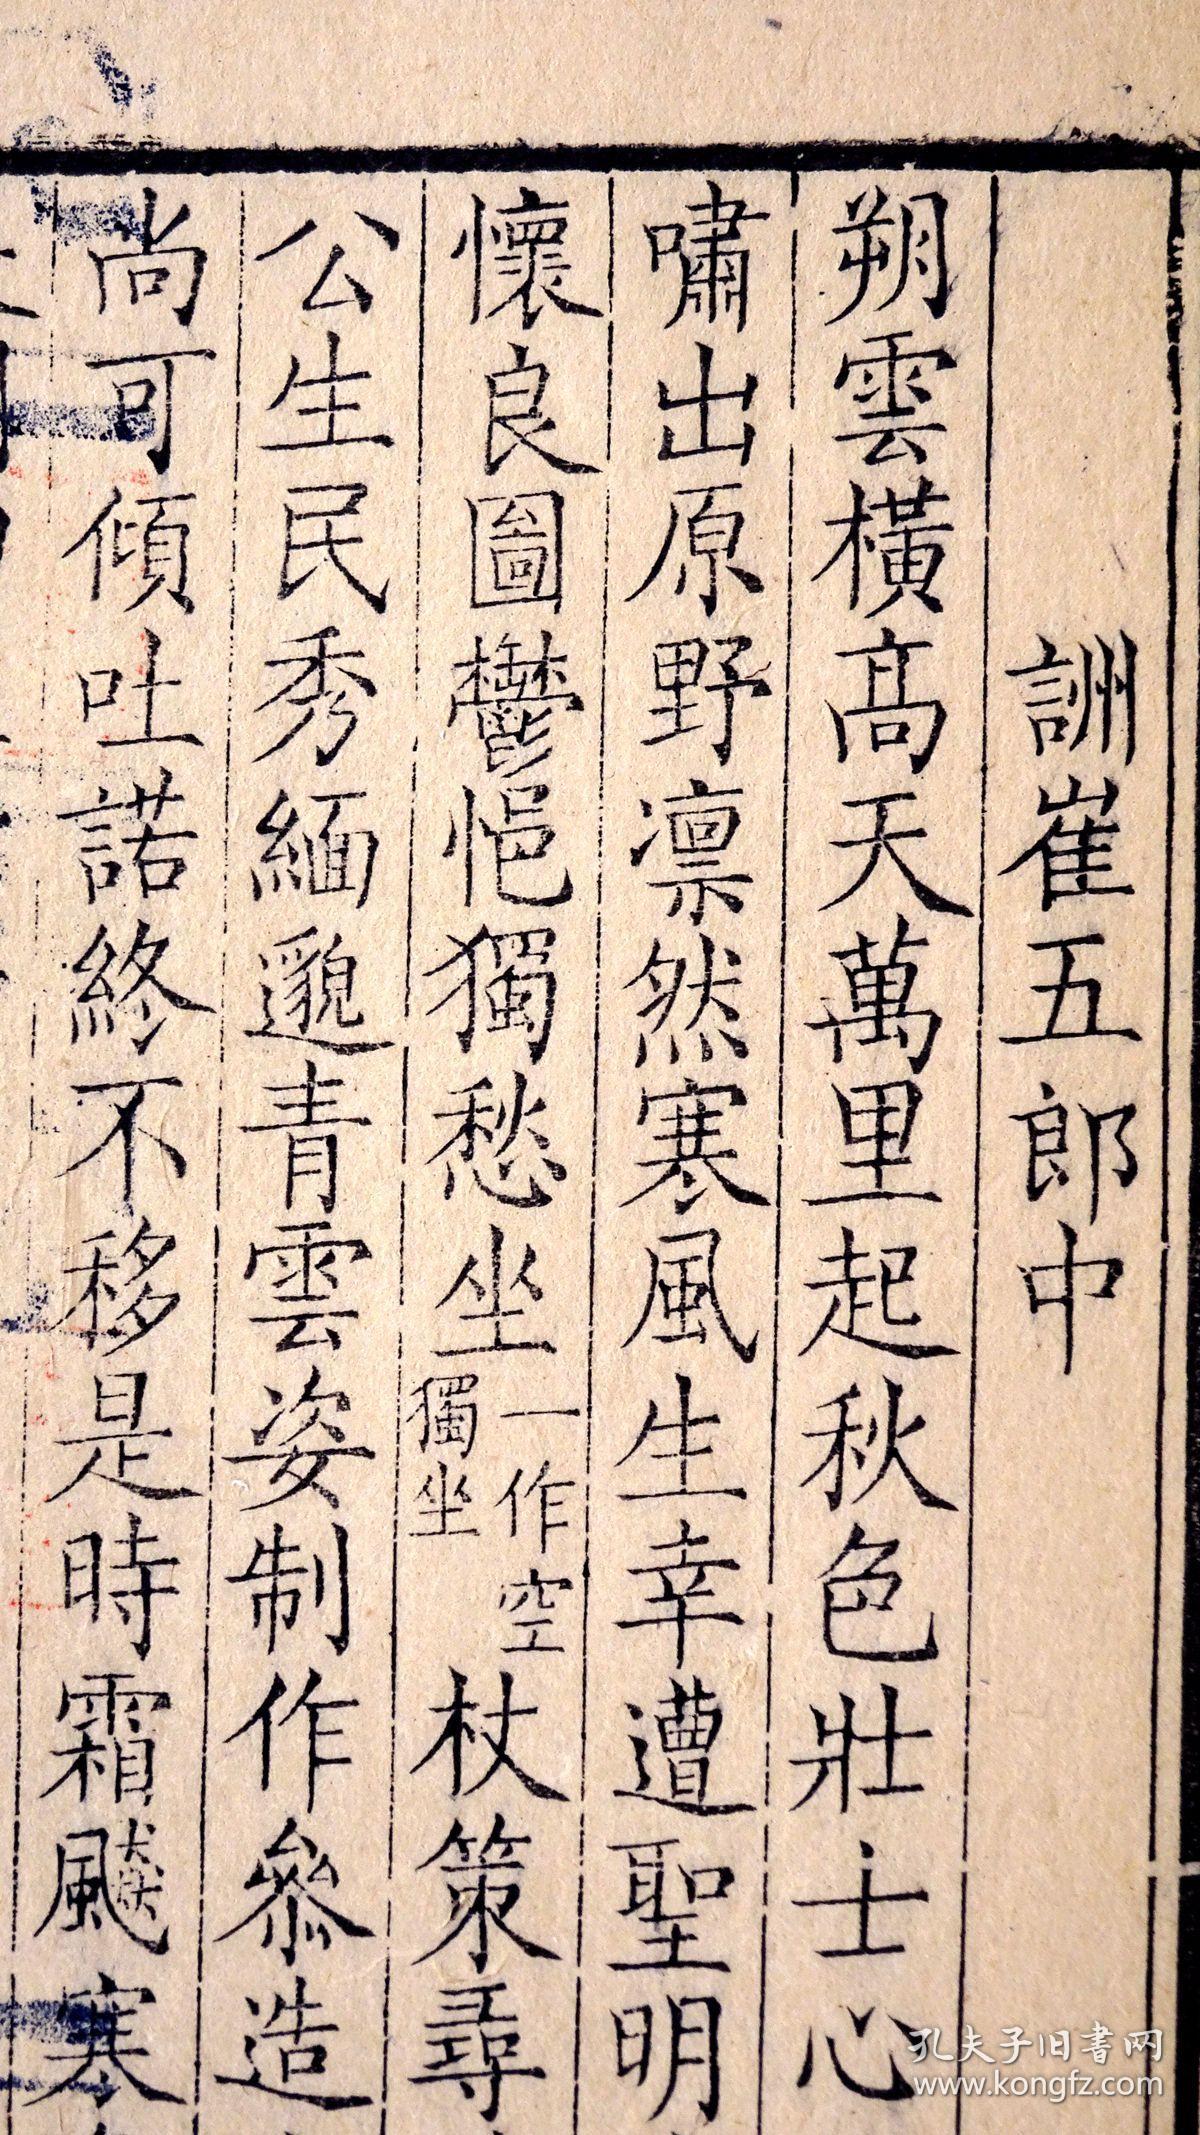 詶崔五郎中
朔雲橫高天萬里起秋色壯士心
嘯出原野凛然寒風生幸遭聖明
懷良圖鬱悒獨愁坐一作空獨坐杖策尋
公生民秀緬邈青雲姿制作叅造
尚可傾吐諾終不移是時霜飈寒
孔夫子旧書网
www.kongfz.com